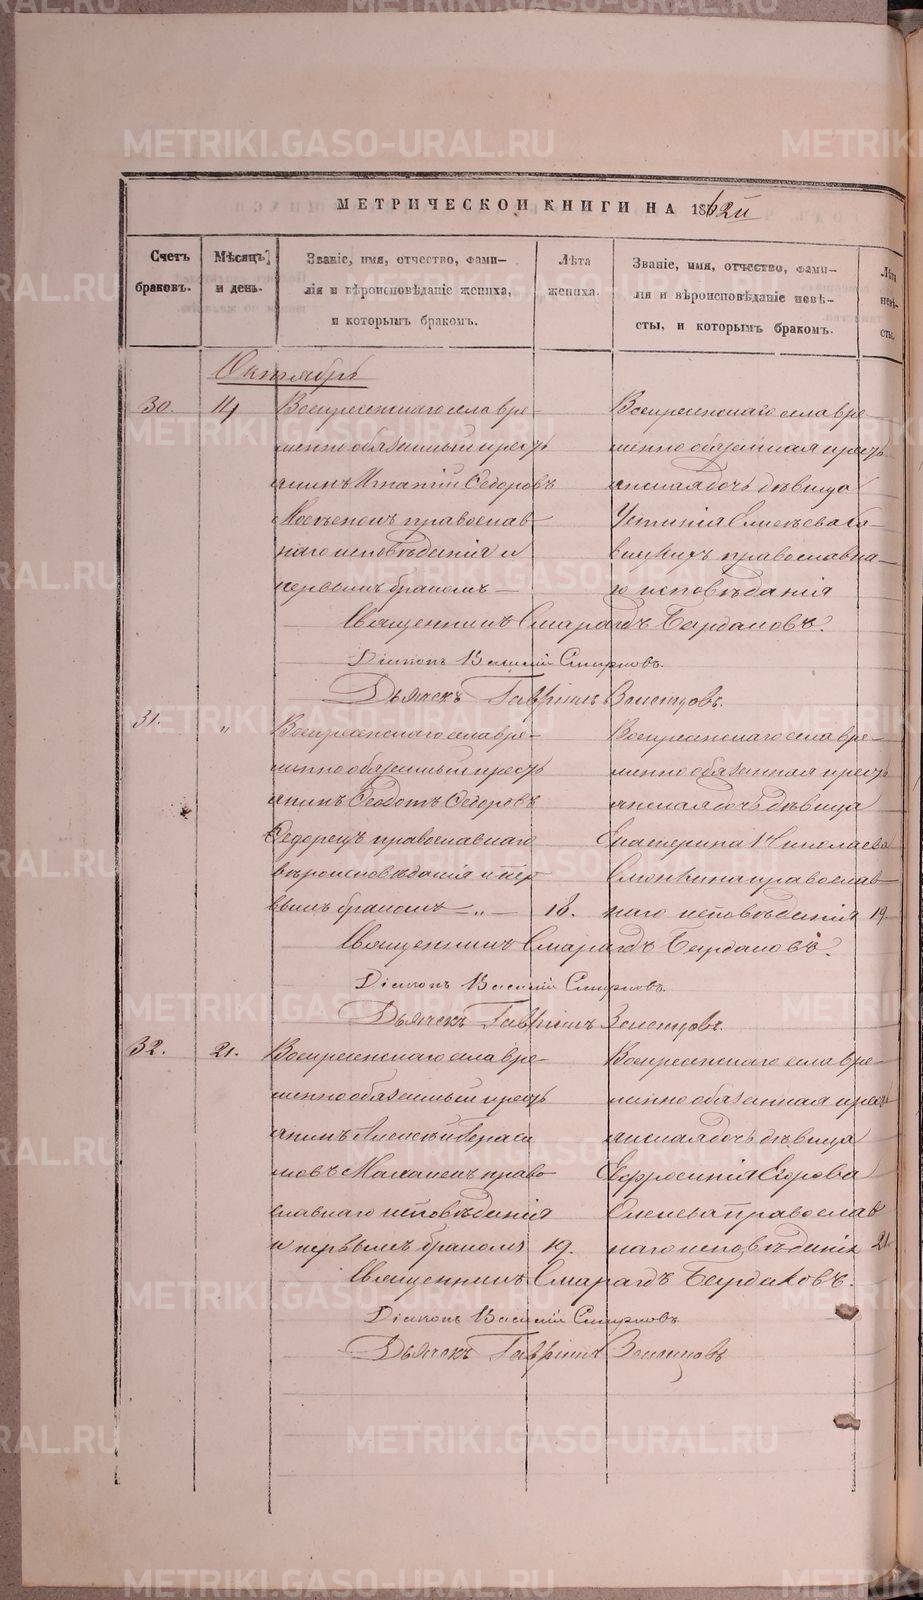 МЕТРИЧЕСКОЙ КНИГИ НА 1862й
Счетъ браковъ.
Мѣсяцъ и день.
Званіе, имя, отчество, фами-
лія и вѣроисповѣданіе жениха,
и которымъ бракомъ.
Лѣта
жениха.
Званіе, имя, отчество, фами-
лія и вѣроисповѣданіе невѣ-
сты, и которымъ бракомъ.
Лѣта
невѣ-
сты.
Октябрь
30. 14 Воскресенскаго села вре-
менно обязанный кресть
янинъ Игнатій Ѳедоровъ
православ-
наго исповѣданія и
первымъ бракомъ
Воскресенскаго села вре-
менно обязанная кресть
янская дочь дѣвица
Устинія
православна-
го исповѣданія
Священникъ Смарагдъ
Діаконъ Василій Смирновъ.
Дьячекъ Гавріилъ
31. " Воскресенскаго села вре-
менно обязанный кресть
янинъ Ѳеодотъ Ѳедоровъ
Ѳедорецъ православнаго
вѣроисповѣданія и пер
вымъ бракомъ " 18.
Воскресенскаго села вре-
менно обязанная кресть
янская дочь дѣвица
Екатерина Николаева
православ-
наго исповѣданія 19.
Священникъ Смарагдъ
Діаконъ Василій Смирновъ.
Дьячекъ Гавріилъ
32. 21. Воскресенскаго села вре-
менно обязанный кресть
янинъ Алексѣй Гераси
мовъ право
славнаго исповѣданія
и первымъ бракомъ 19.
Воскресенскаго села вре-
менно обязанная кресть
янская дочь дѣвица
Евфросинія Егорова
православ
наго исповѣданія 21.
Священникъ Смарагдъ
Діаконъ Василій Смирновъ
Дьячекъ Гавріилъ
METRIKI.GASO-URAL.RU